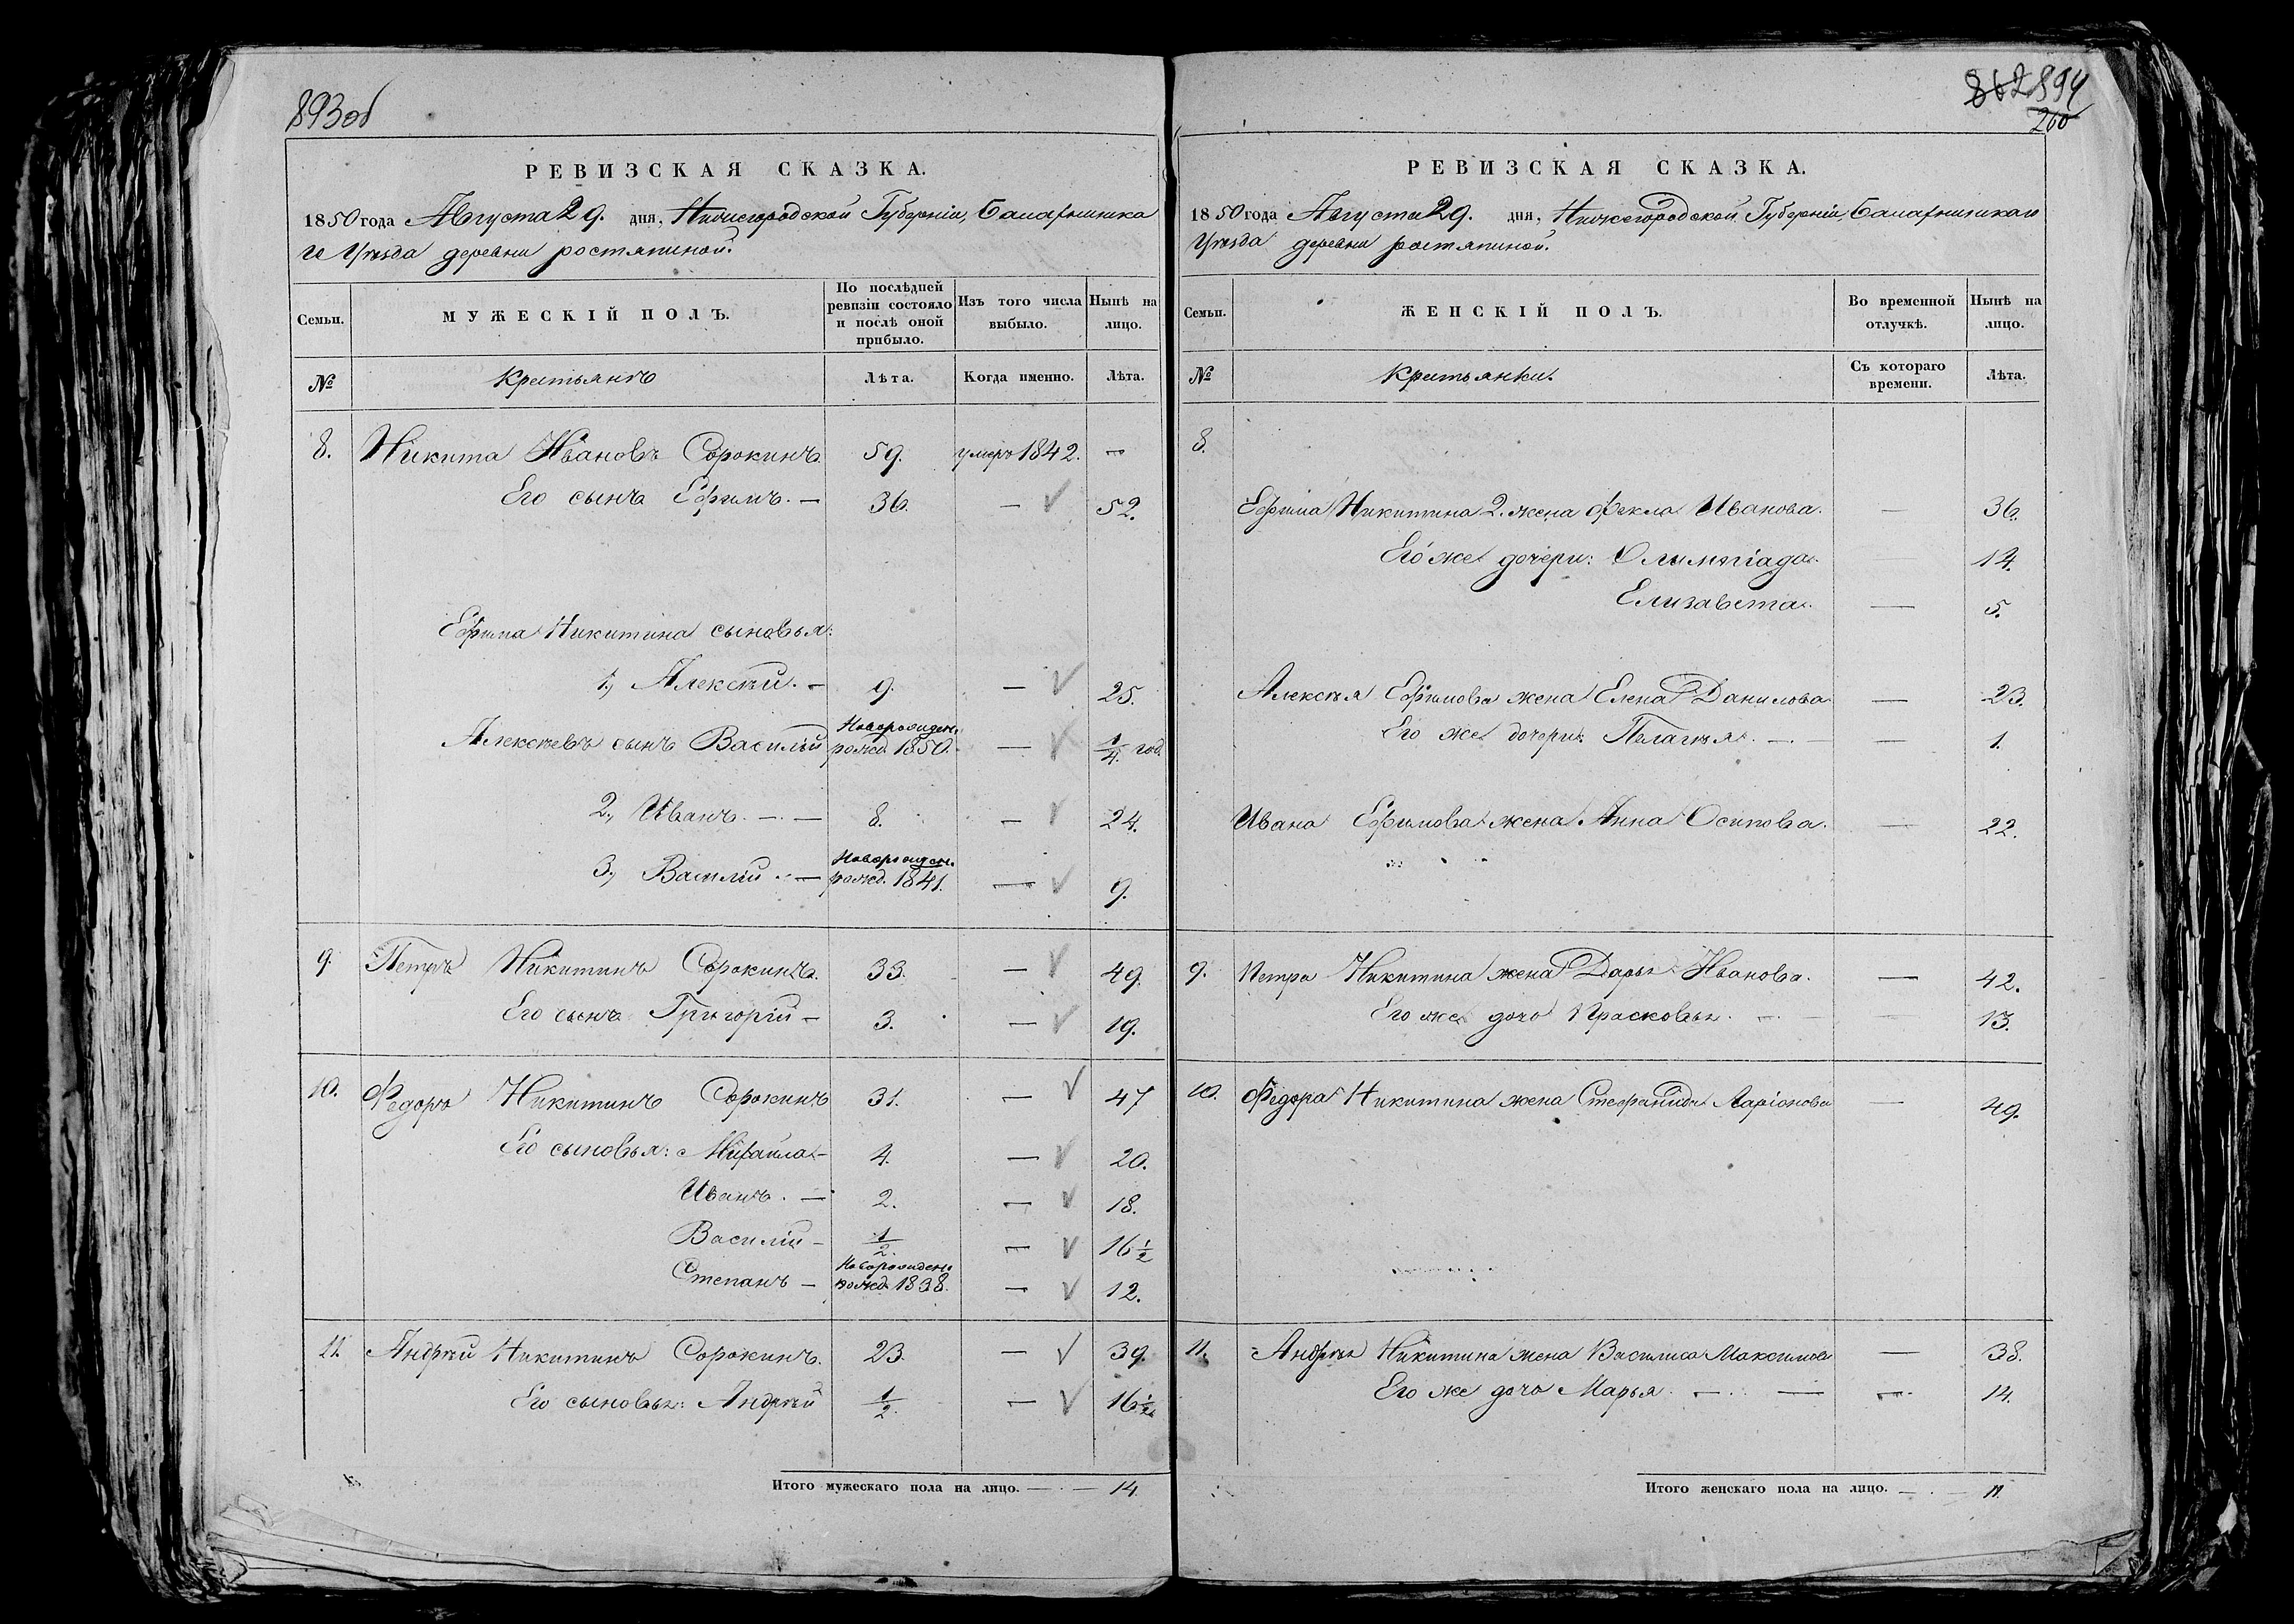 893об
РЕВИЗСКАЯ СКАЗКА.
1850 года Августа 29. дня, Нижегородской Губерніи, Балахнинска
го Уѣзда деревни ростяпиной.
Семьи.
МУЖЕСКІЙ ПОЛЪ.
По послѣдней ревизіи состояло и послѣ оной прибыло.
Изъ того числа выбыло.
Нынѣ на лицо.
№
Крестьянъ
Лѣта.
Когда именно.
Лѣта.
8. Никита Ивановъ Сорокинъ. 59. умеръ 1842. —
Его сынъ Ефимъ. — 36. — 52.
Ефима Никитина сыновья:
1, Алексѣй. — 9. — 25.
Алексѣевъ сынъ Василій Новорожден. рожд. 1850. — 1/4 год.
2, Иванъ. — — 8. — 24.
3, Василій. — Новорожден. рожд. 1841. — 9.
9. Петръ Никитинъ Сорокинъ. 33. — 49.
Его сынъ Григорій — 3. — 19.
10. Федоръ Никитинъ Сорокинъ 31. — 47
Его сыновья: Михайла — 4. — 20.
Иванъ. — 2. — 18.
Василій — 1/2. — 16 1/2
Степанъ — Новорожден. рожд. 1838. — 12.
11. Андрѣй Никитинъ Сорокинъ. 23. — 39.
Его сыновья: Андрѣй 1/2. — 16 1/2
Итого мужескаго пола на лицо. — — 14
862 894
260
РЕВИЗСКАЯ СКАЗКА.
1850 года Августа 29. дня, Нижегородской Губерніи, Балахнинскаго
Уѣзда деревни ростяпиной.
Семьи.
ЖЕНСКІЙ ПОЛЪ.
Во временной отлучкѣ.
Нынѣ на лицо.
№
Крестьянки.
Съ котораго времени.
Лѣта.
8.
Ефима Никитина 2. жена Фекла Иванова. — 36.
Его же дочери: Олимпіада. 14.
Елизавета. — 5.
Алексѣя Ефимова жена Елена Данилова — 23.
Его же дочери: Пелагѣя. — — 1.
Ивана Ефимова жена Анна Осипова. — 22.
9. Петра Никитина жена Дарья Иванова. — 42.
Его же дочь Прасковья. — — 13.
10. Федора Никитина жена Стефанида Ларіонова — 49.
11. Андрѣя Никитина жена Василиса Максимова — 38.
Его же дочь Марья. — — — 14.
Итого женскаго пола на лицо. — — 11.